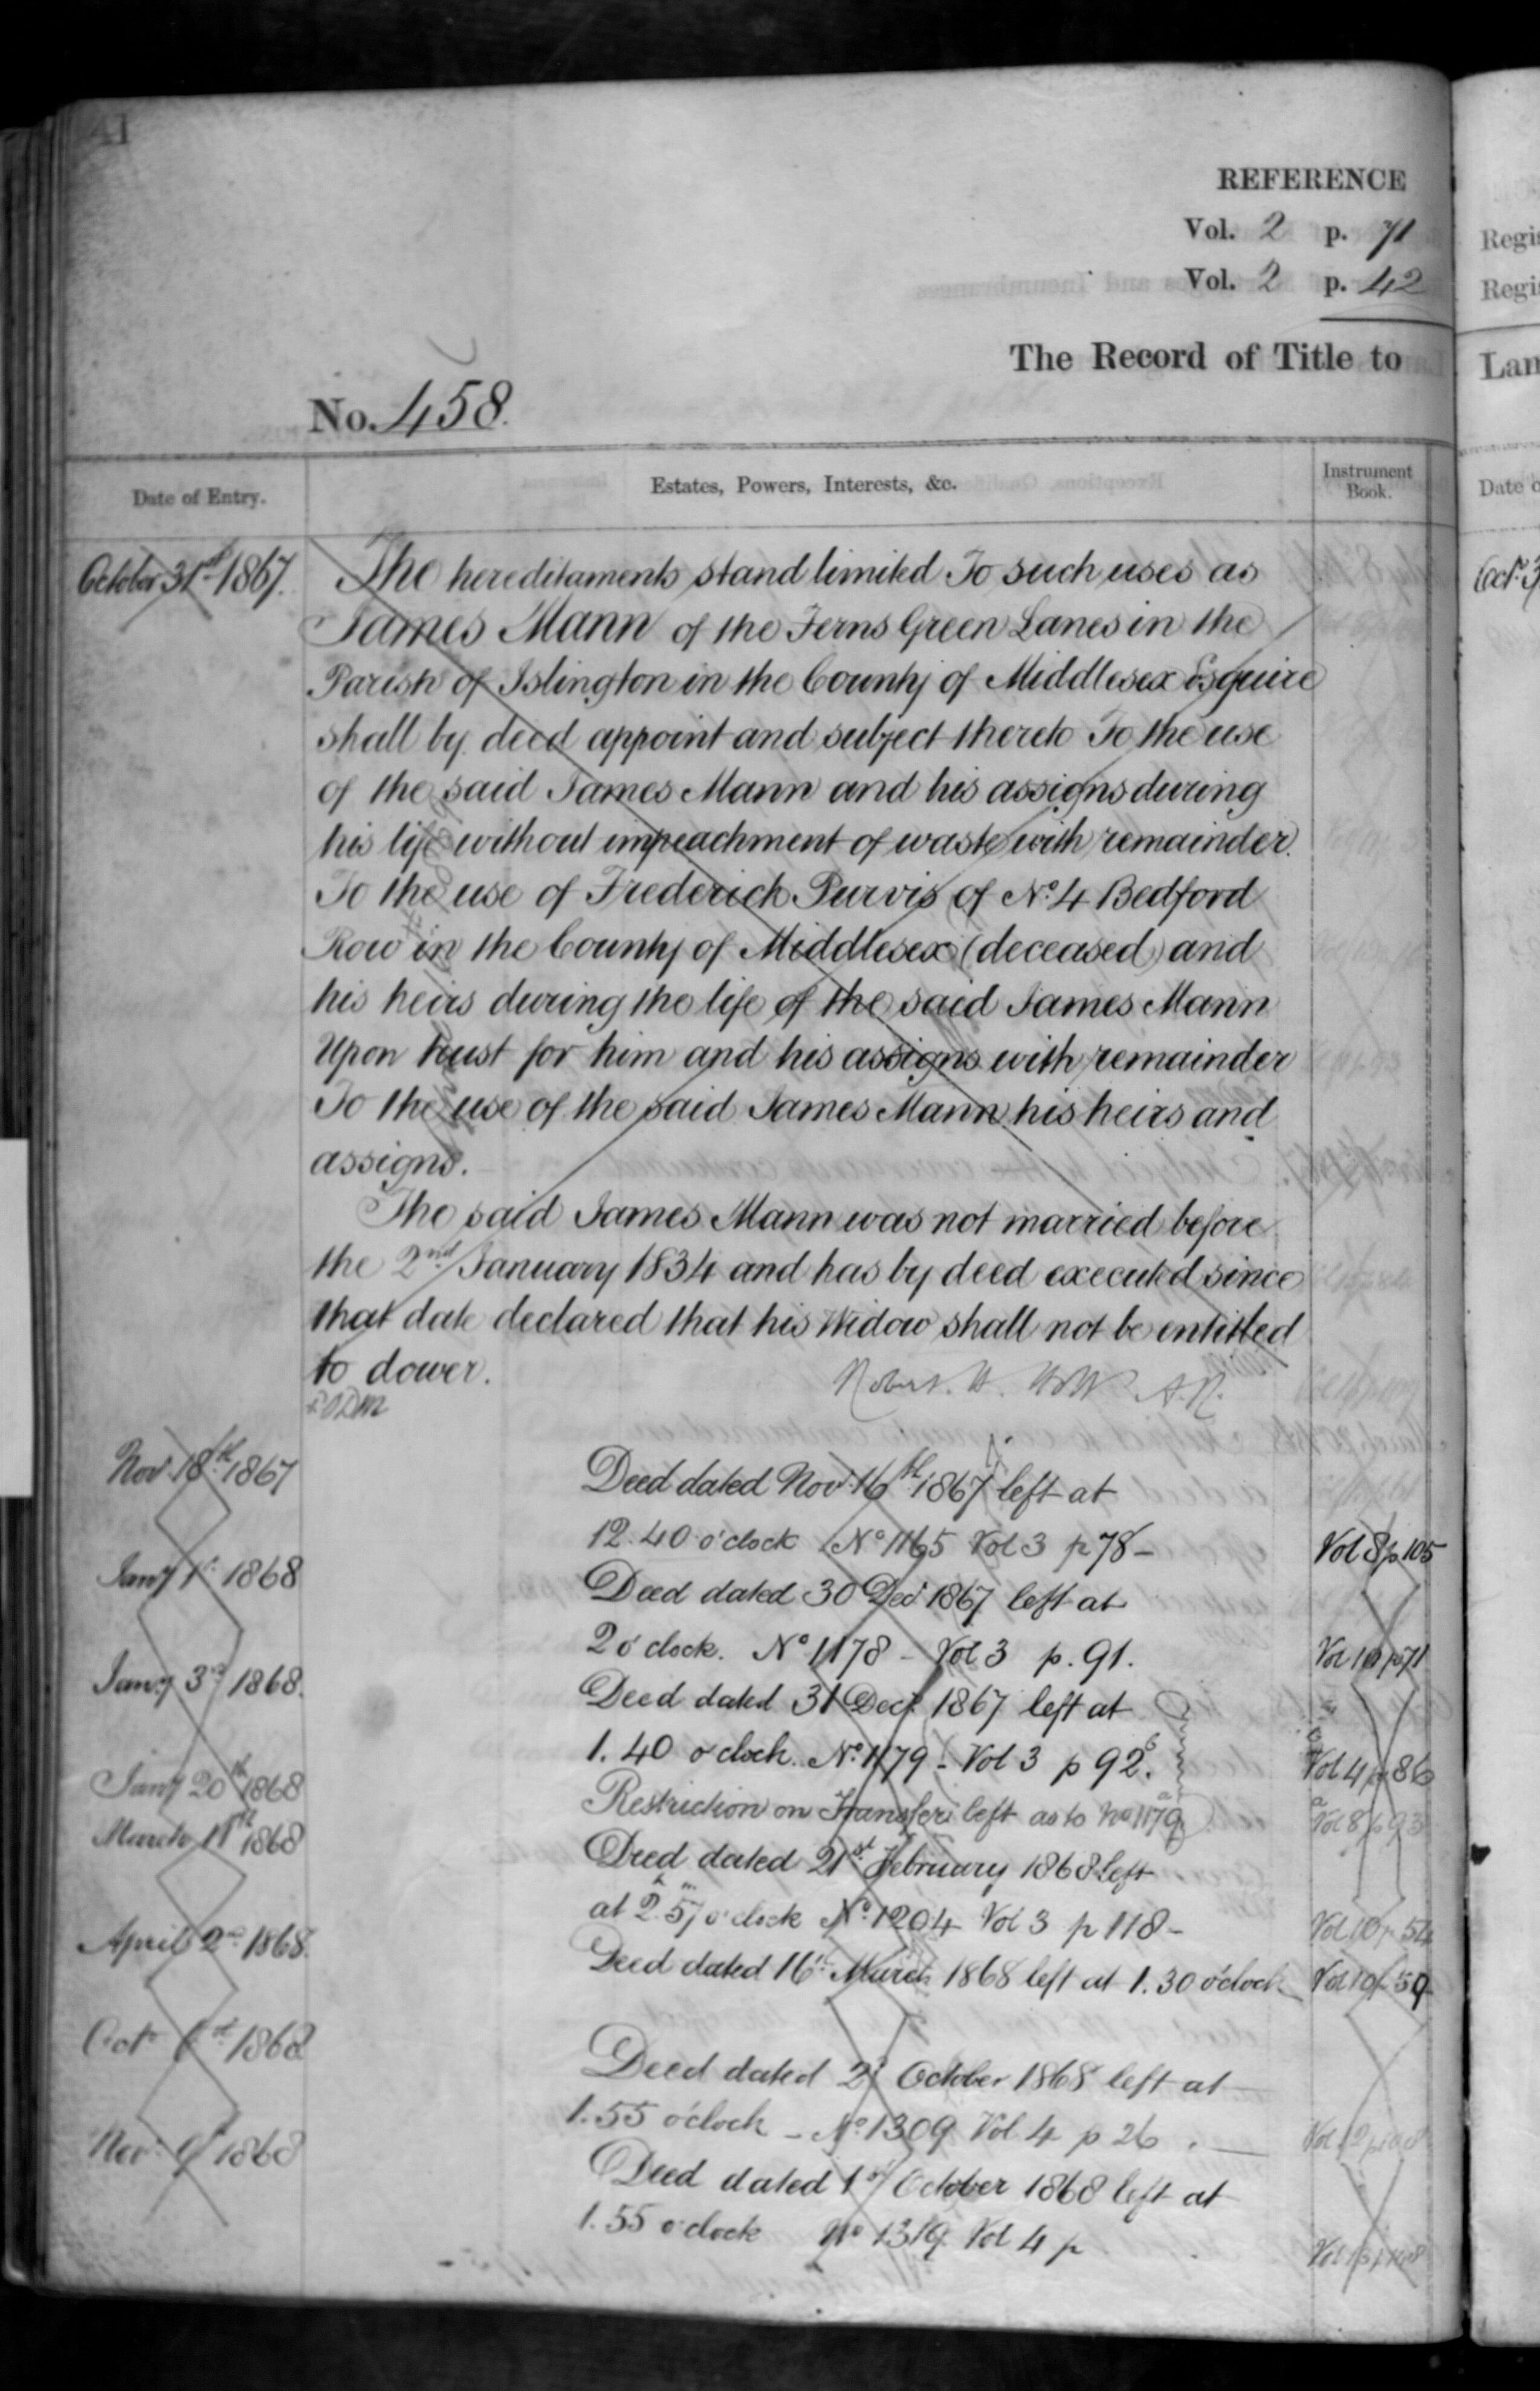 41
REFERENCE
Vol. 2 p. 71
Vol. 2 p. 42
The Record of Title to
No. 458.
Date of Entry.
Estates, Powers, Interests, &c.
Instrument Book.
October 31st 1867.
The hereditaments stand limited To such uses as
James Mann of the Ferns Green Lanes in the
Parish of Islington in the County of Middlesex Esquire
shall by deed appoint and subject thereto To the use
of the said James Mann and his assigns during
his life without impeachment of waste with remainder
To the use of Frederick Purvis of No. 4 Bedford
Row in the County of Middlesex (deceased) and
his heirs during the life of the said James Mann
Upon trust for him and his assigns with remainder
To the use of the said James Mann his heirs and
assigns.
The said James Mann was not married before
the 2nd January 1834 and has by deed executed since
that date declared that his Widow shall not be entitled
to dower.
Robert. H. A.R.
Nov. 18th 1867
Deed dated Nov. 16th 1867 left at
12.40 o'clock No 1165 Vol 3 p 78 –
Vol 8 p 105
Jany 1st 1868
Deed dated 30 Decr 1867 left at
2 o'clock. No 1178 – Vol 3 p. 91.
Vol 10 p 71
Jany 3rd 1868.
Deed dated 31 Decr 1867 left at
1.40 o'clock. No. 1179 – Vol 3 p 92.
Vol 4 p 86
Jany 20th 1868
Restriction on Transfer left as to No 1179
Vol 8 p 93
March 11th 1868
Deed dated 21st February 1868 left
at 2.57 o'clock No. 1204 Vol 3 p 118 –
Vol 10 p 54
April 2nd 1868.
Deed dated 16th March 1868 left at 1.30 o'clock
Vol 10 p 59
Octr 1868
Deed dated 2d October 1868 left at
1.55 o'clock – No. 1309 Vol 4 p 26.
Nov. 9 1868
Deed dated 1st October 1868 left at
1.55 o'clock No 1319 Vol 4 p
Regis
Regis
Lan
Date o
Oct. 3